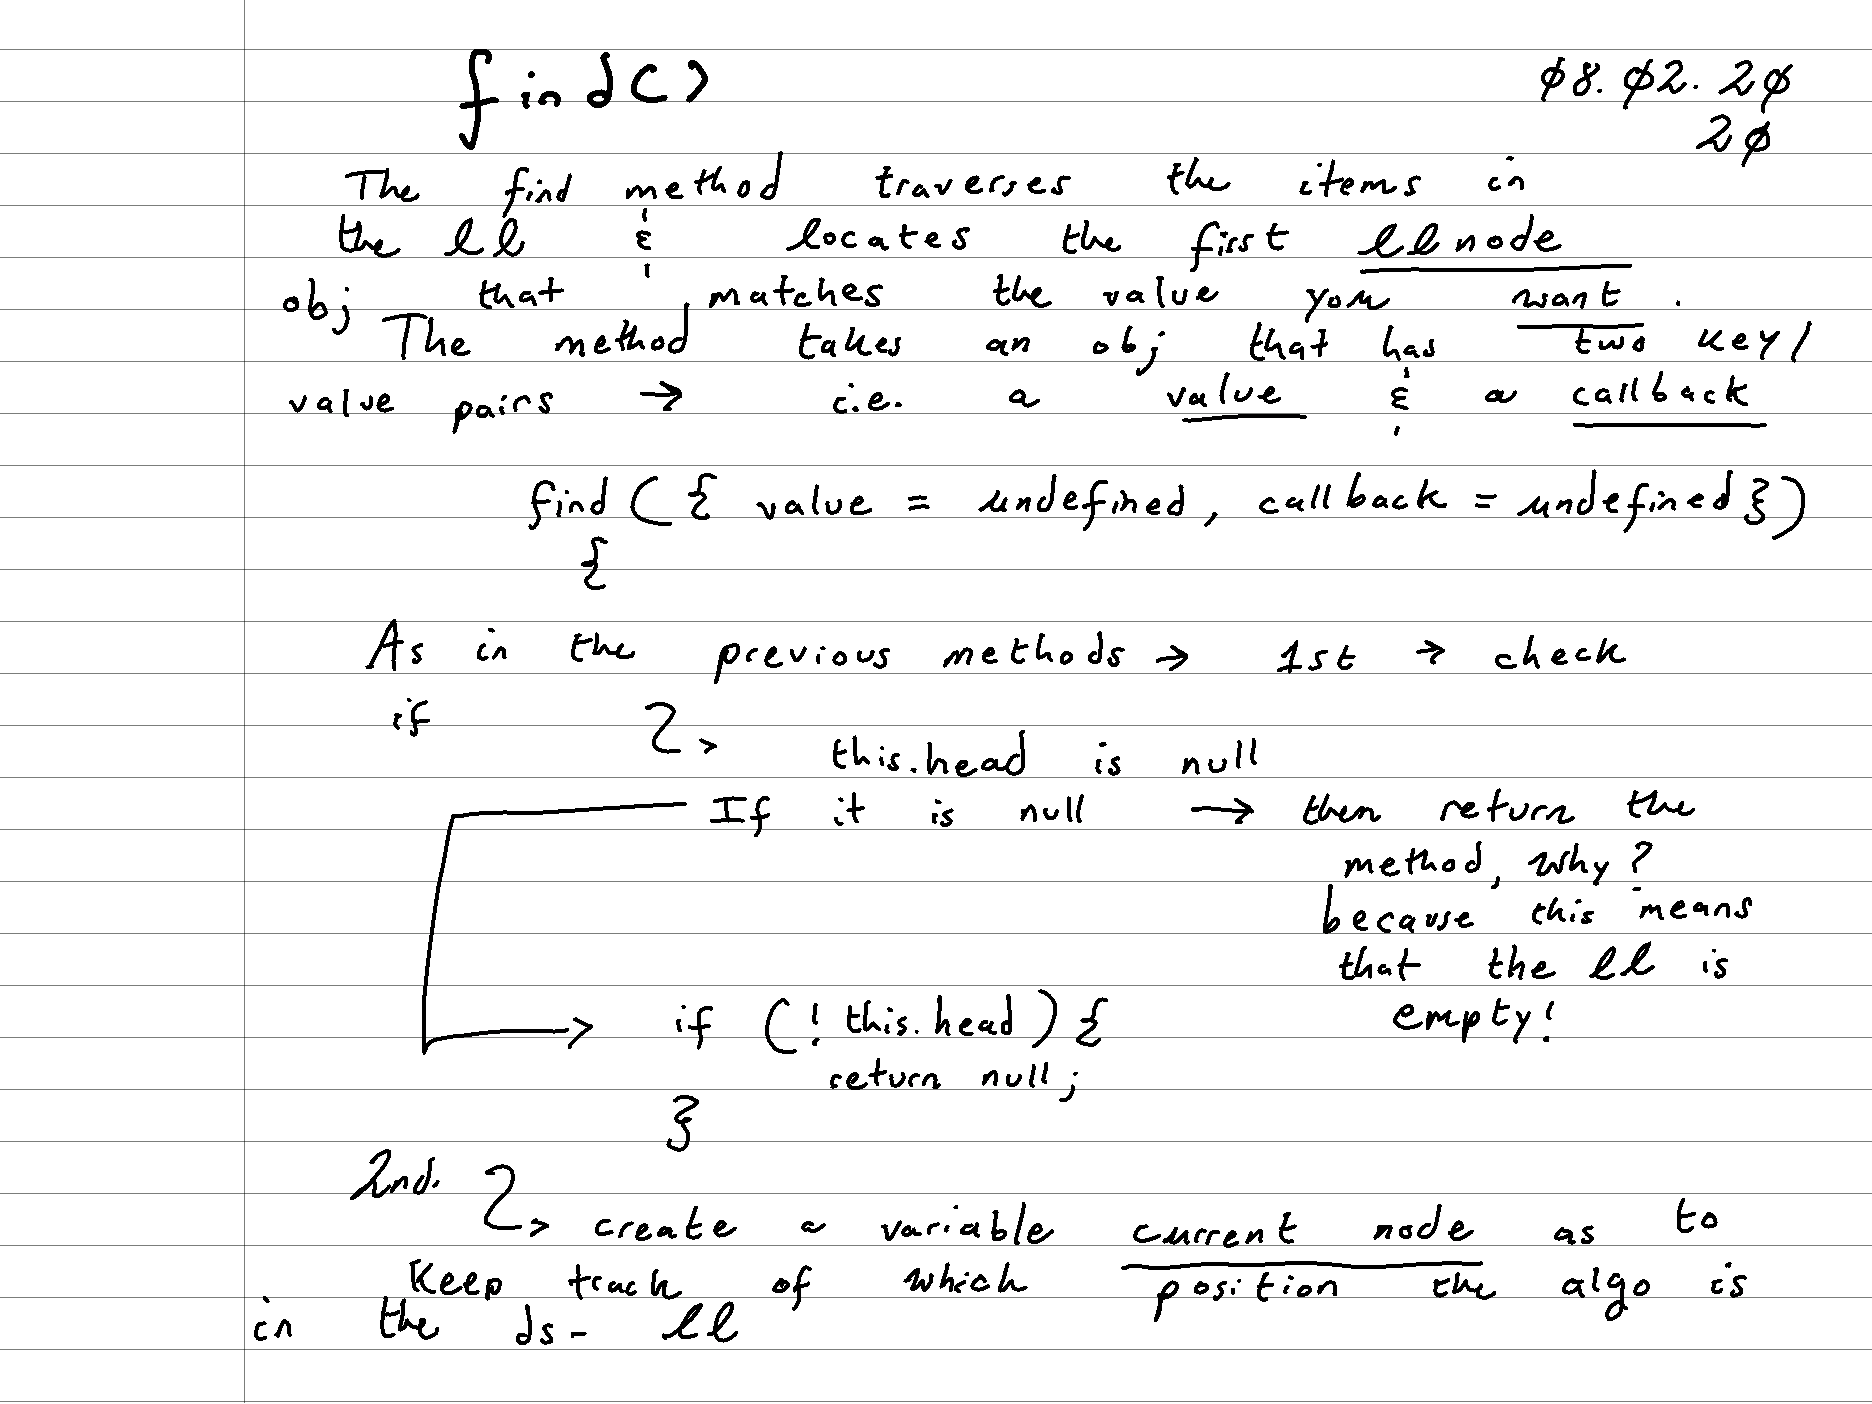 find()
ø8. ø2. 2ø
2ø
The find method traverses the items in
the ll & locates the first ll node
obj that matches the value you want.
The method takes an obj that has two key/
value pairs → i.e. a value & a callback
find ({ value = undefined, callback = undefined })
{
As in the previous methods → 1st → check
if
this.head is null
If it is null → then return the
method, why?
because this means
that the ll is
empty!
if (! this.head) {
return null;
}
2nd.
create a variable current node as to
keep track of which position the algo is
in the ds - ll